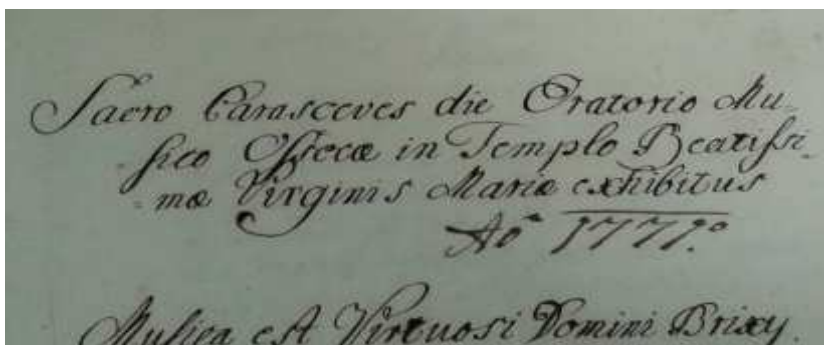 Sacro Parasceves die Oratorio Mu-
sico Ossecæ in Templo Beatissi-
mæ Virginis Mariæ exhibitus
Aõ 1771.º
Musica est Virtuosi Domini Brixy.